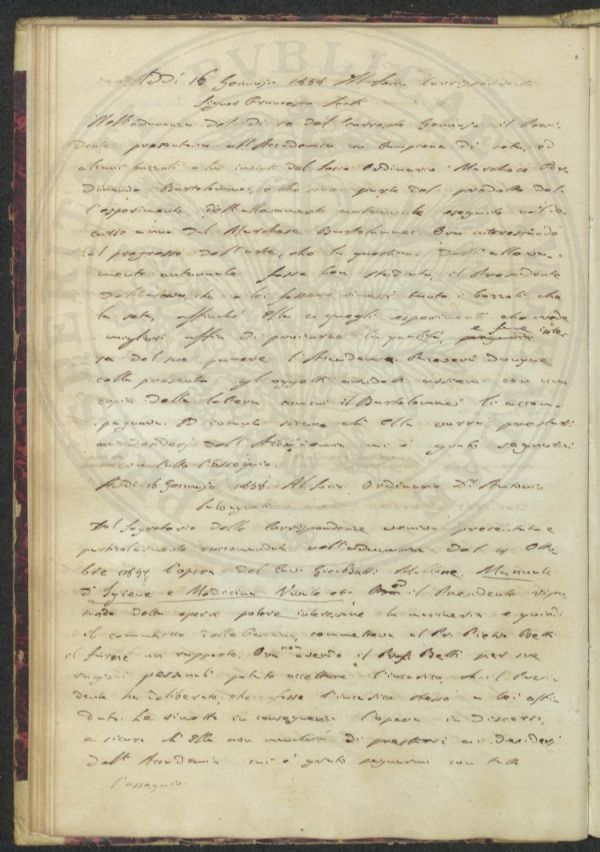 Addì 16 Gennajo 1838 Al Socio Corrispondente
Signor Francesco
Nell'adunanza del dì 10 del corrente Gennajo il Presi-
dente presentava all'Accademia un campione di seta, ed
alcuni bozzoli a lui inviati dal Socio Ordinario Marchese Fer-
dinando Bartolommei, e che sono parte del prodotto del-
l'esperimento dell'allevamento autunnale eseguito nel de-
corso anno dal Marchese Bartolommei. Ora interessando
al progresso dell'arte, che la questione degli alleva-
menti autunnali fosse ben studiata, il Presidente
deliberava che a lei fossero rimessi tanto i bozzoli che
la seta, affinché Ella ci quegli esperimenti che crede
migliori affin di provarne la qualità, e farne inte-
sa del suo parere l'Accademia. Riceverà dunque
colla presente gli oggetti suddetti assieme con una
copia della lettera con cui il Bartolommei li accom-
pagnava. Ed essendo sicuro ch'Ella vorrà prestarsi
ai desideri dell'Accademia mi è grato segnarmi
con tutto l'ossequio.
Addì 16 Gennajo 1838. Al Socio Ordinario Dr Antonio
Salvagnoli
Dal Segretario delle Corrispondenze veniva presentata e
particolarmente raccomandata nell'adunanza del 4 Otto-
bre 1837 l'opera del Cav. Gio: Batt. Massone, Manuale
d'Igiene e Medicina Navale ed il Presidente ripu-
tando detta opera potere interessare la marineria e quindi
il commercio della Toscana, commetteva al Pr. Pietro Betti
il farne un rapporto. Ora non avendo il Prof. Betti per sue
ragioni personali potuto accettare l'incarico, il Presi-
dente ha deliberato, che fosse l'incarico stesso a lei affi-
dato. Le rimetto in conseguenza l'opera in discorso,
e sicuro ch'Ella non mancherà di prestarsi ai desideri
dell'Accademia mi è grato segnarmi con tutto
l'ossequio.